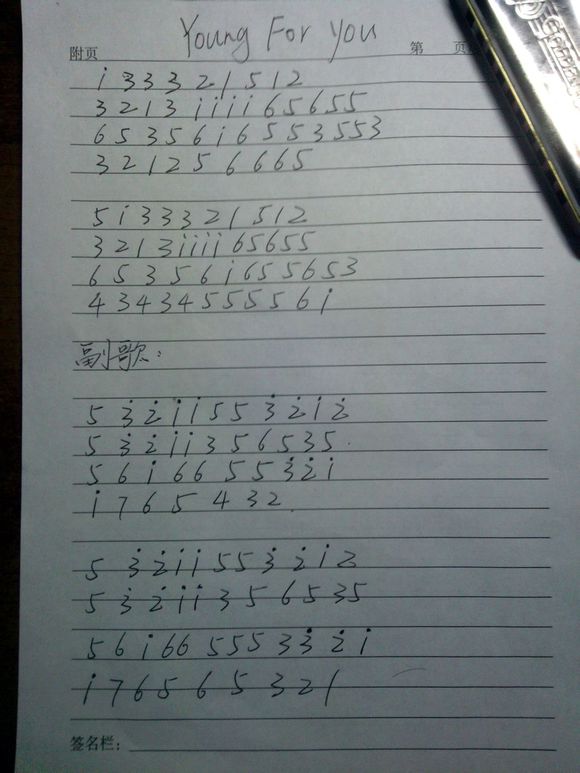 Young For you
附页 第 页
i 3 3 3 2 1 5 1 2
3 2 1 3 i i i i 6 5 6 5 5
6 5 3 5 6 i 6 5 5 3 5 5 3
3 2 1 2 5 6 6 6 5
5 i 3 3 3 2 1 5 1 2
3 2 1 3 i i i i 6 5 6 5 5
6 5 3 5 6 i 6 5 5 6 5 3
4 3 4 3 4 5 5 5 5 6 i
副歌:
5 3̇ 2̇ i i 5 5 3̇ 2̇ i 2̇
5 3̇ 2̇ i i 3 5 6 5 3 5
5 6 i 6 6 5 5 3̇ 2̇ i
i 7 6 5 4 3 2
5 3̇ 2̇ i i 5 5 3̇ 2̇ i 2
5 3̇ 2̇ i i 3 5 6 5 3 5
5 6 i 6 6 5 5 5 3 3̇ 2̇ i
i 7 6 5 6 5 3 2 1
签名栏: